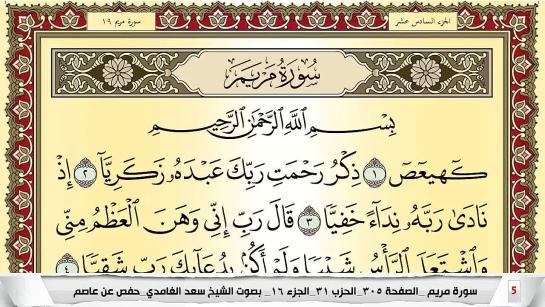 الجزء السادس عشر
سورة مريم ١٩
سُورَةُ مَرْيَمَ
بِسْمِ اللَّهِ الرَّحْمَٰنِ الرَّحِيمِ
كٓهيعٓصٓ ١ ذِكْرُ رَحْمَتِ رَبِّكَ عَبْدَهُۥ زَكَرِيَّآ ٢ إِذْ
نَادَىٰ رَبَّهُۥ نِدَآءً خَفِيًّا ٣ قَالَ رَبِّ إِنِّي وَهَنَ ٱلْعَظْمُ مِنِّي
وَٱشْتَعَلَ ٱلرَّأْسُ شَيْبًا وَلَمْ أَكُنۢ بِدُعَآئِكَ رَبِّ شَقِيًّا ٤
سورة مريم _الصفحة ٣٠٥_ الحزب ٣١_ الجزء ١٦ _ بصوت الشيخ سعد الغامدي_ حفص عن عاصم
5